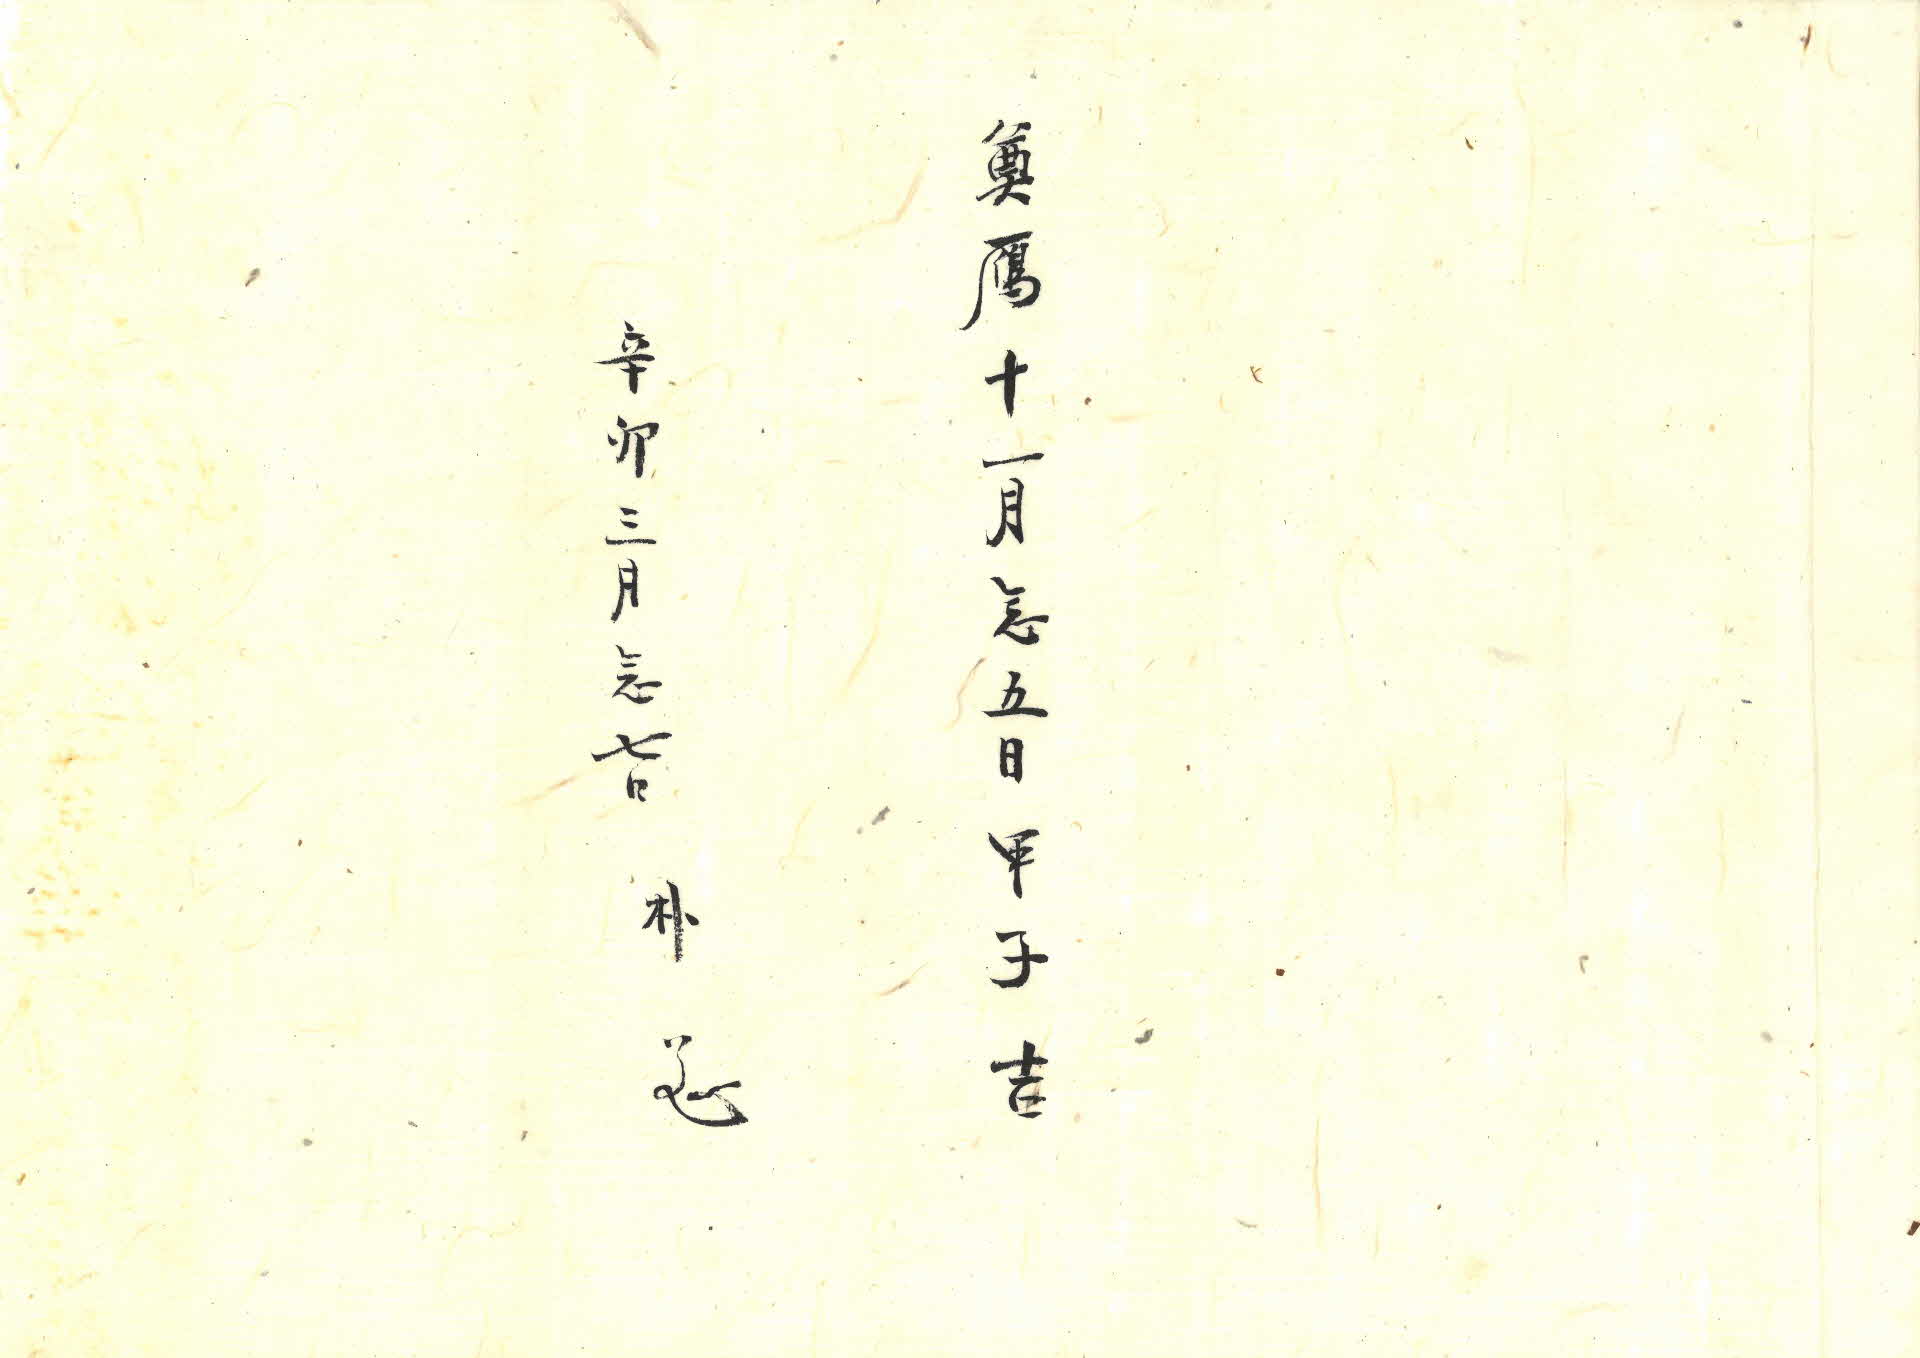 奠鴈十一月念五日甲子吉
辛卯三月念七日 朴